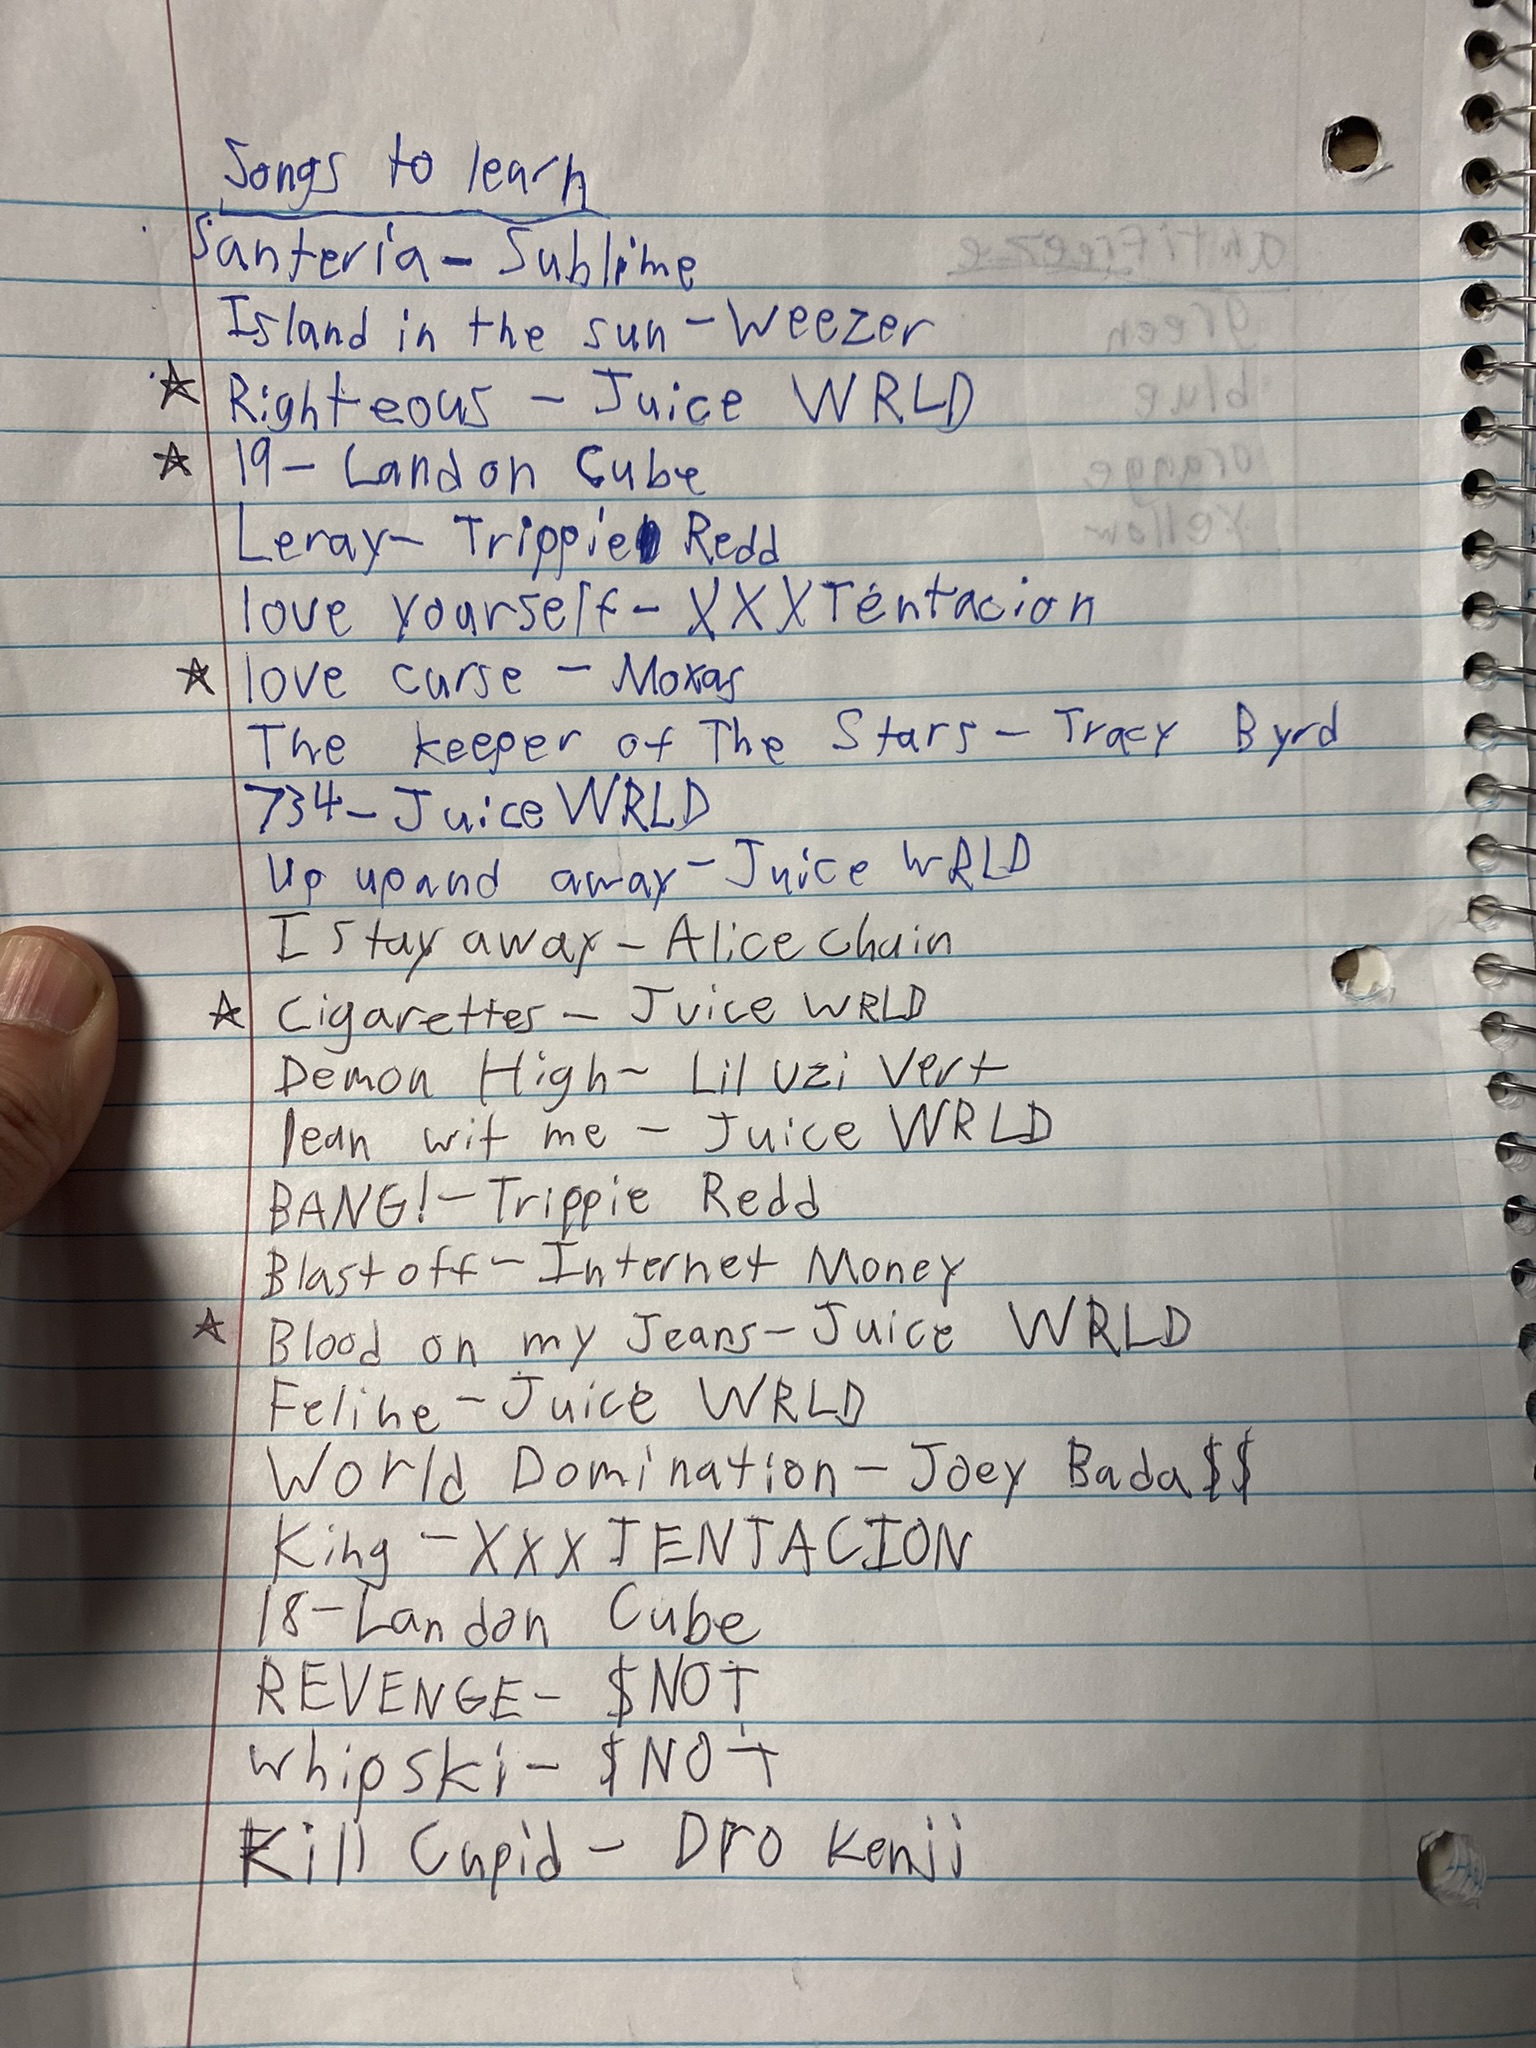 Songs to learn
Santeria - Sublime
Island in the sun - Weezer
☆ Righteous - Juice WRLD
☆ 19 - Landon Cube
Leray - Trippie Redd
love yourself - XXXTentacion
☆ love curse - Moxas
The keeper of The Stars - Tracy Byrd
734 - Juice WRLD
Up up and away - Juice WRLD
I stay away - Alice chain
☆ Cigarettes - Juice WRLD
Demon High - Lil uzi Vert
lean wit me - Juice WRLD
BANG! - Trippie Redd
Blast off - Internet Money
☆ Blood on my Jeans - Juice WRLD
Feline - Juice WRLD
World Domination - Joey Bada$$
King - XXXTENTACION
18 - Landon Cube
REVENGE - $NOT
whipski - $NOT
Kill Cupid - Dro Kenji
antifreeze
green
blue
orange
yellow